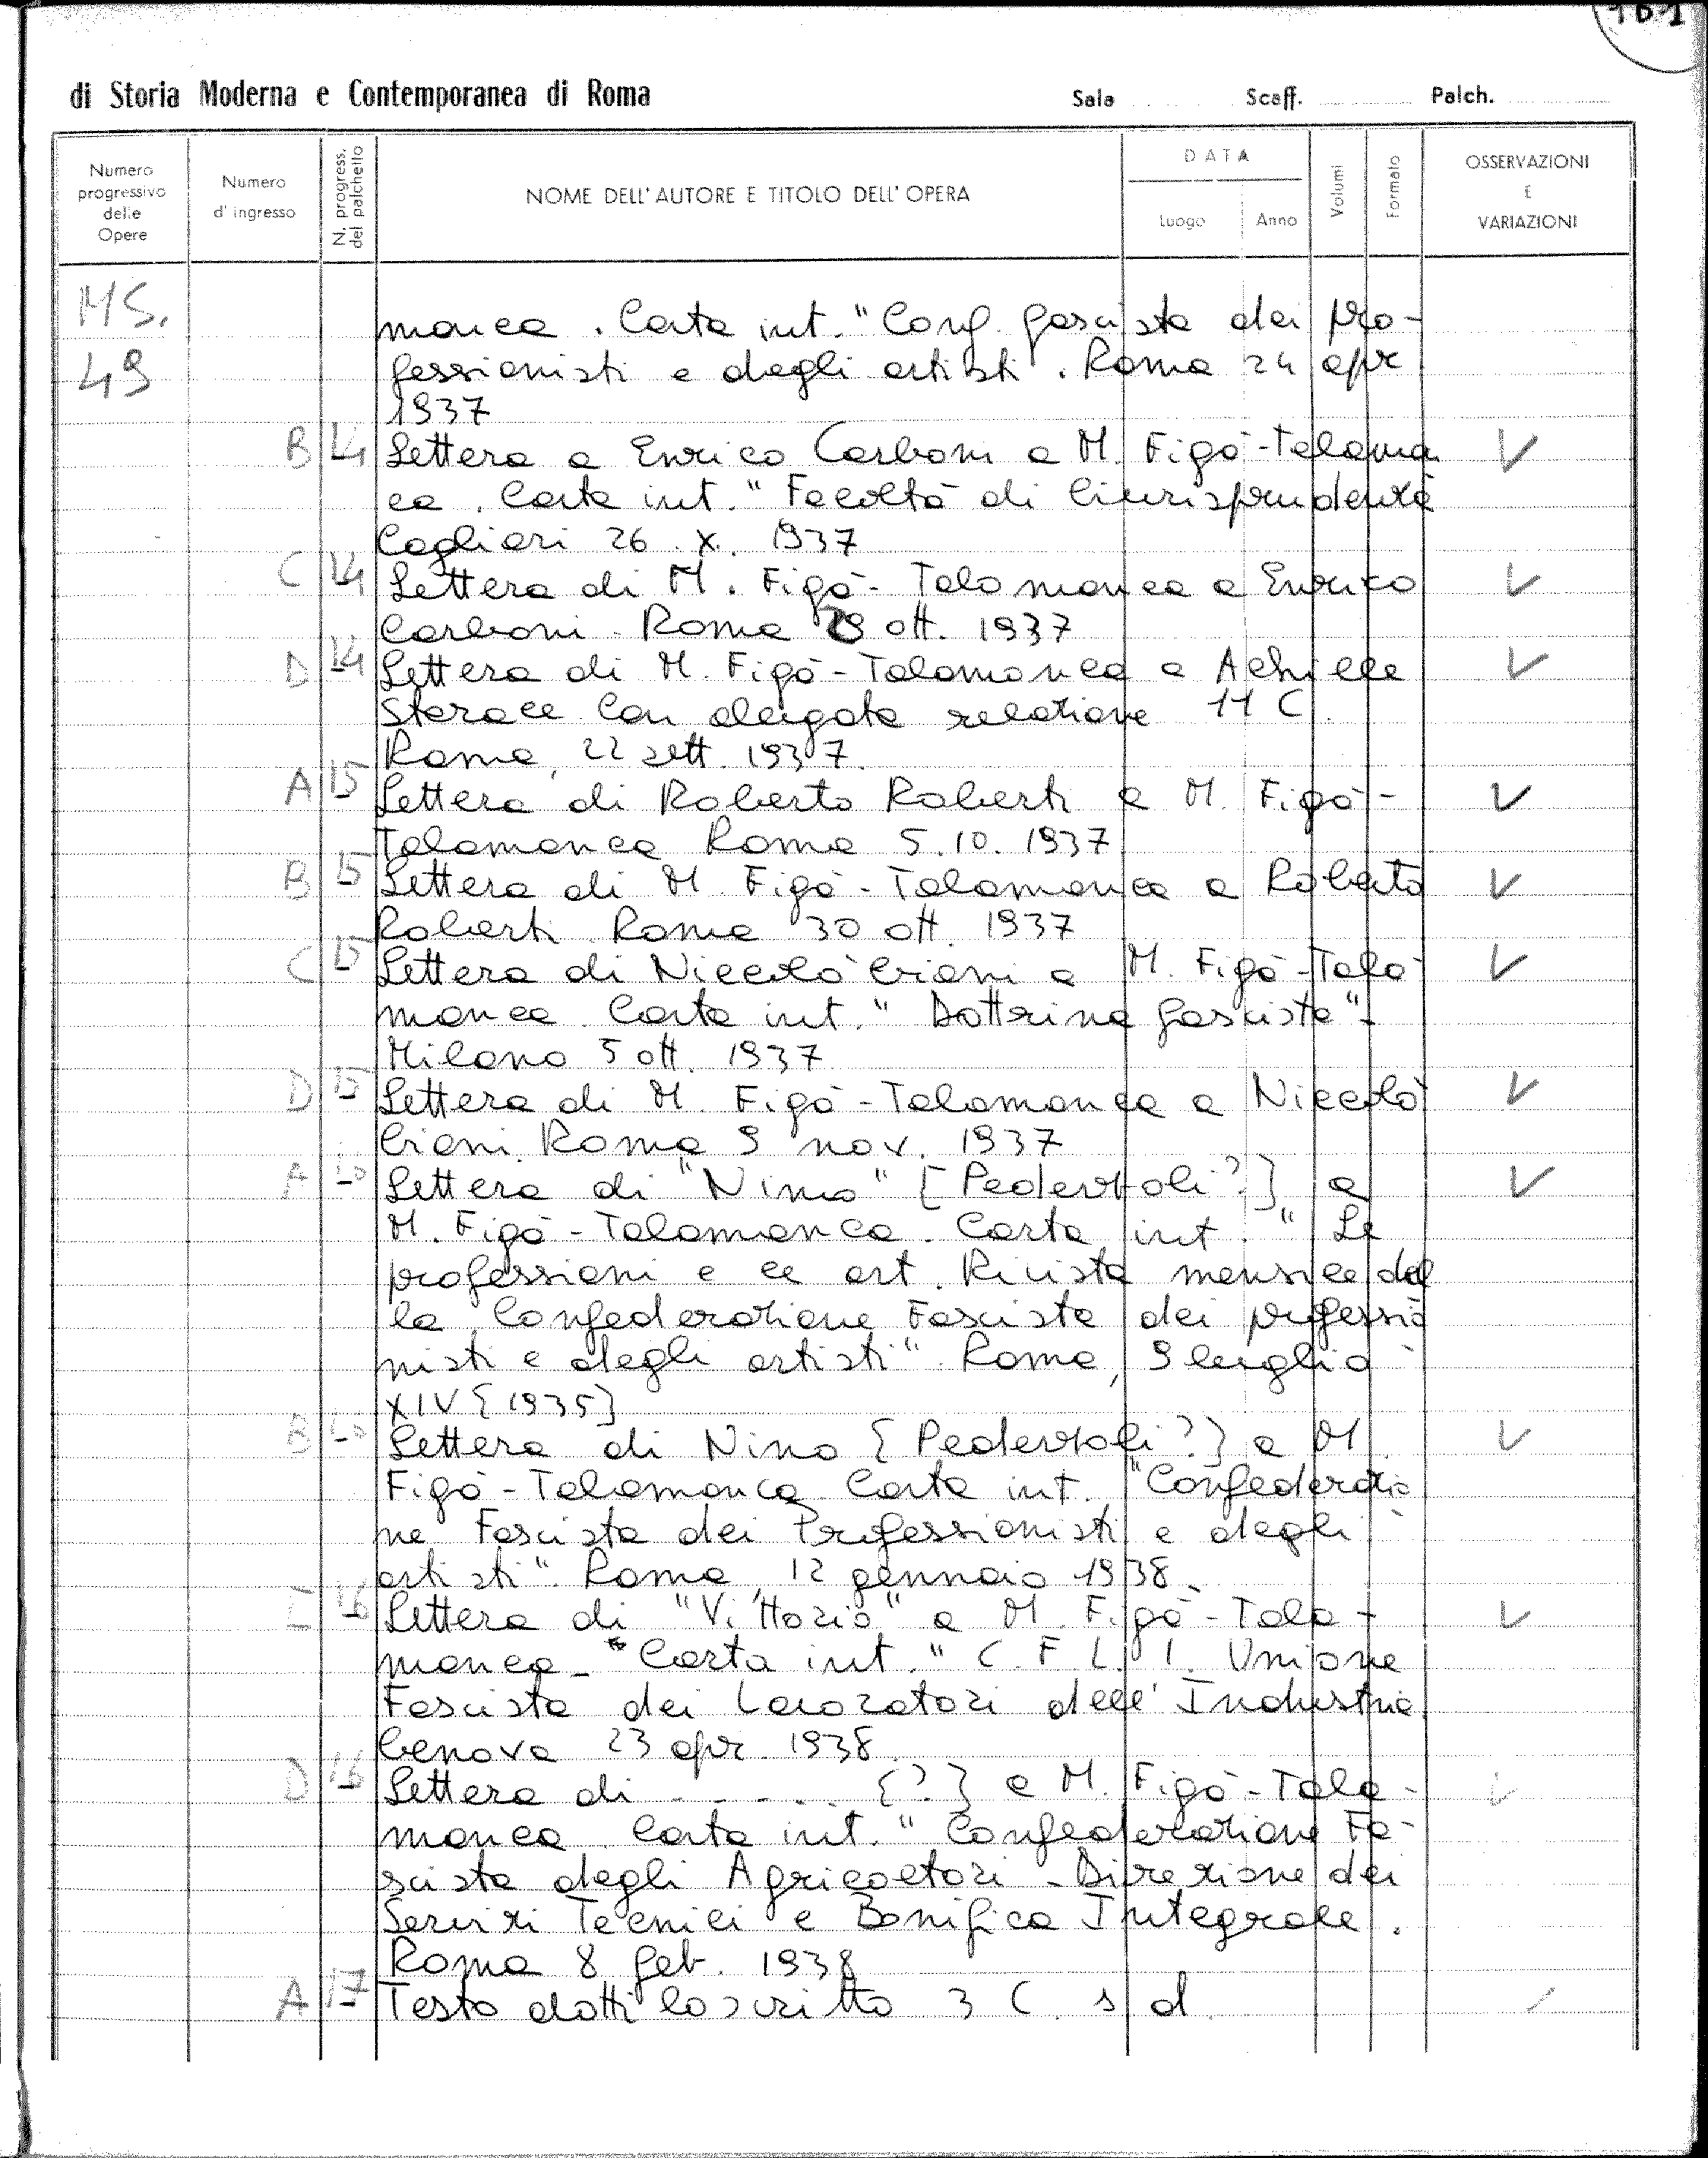 161
di Storia Moderna e Contemporanea di Roma Sala Scaff. Palch.
Numero progressivo delle Opere
Numero d'ingresso
N. progress. del palchetto
NOME DELL'AUTORE E TITOLO DELL'OPERA
DATA
Luogo Anno
Volumi
Formato
OSSERVAZIONI E VARIAZIONI
MS.
49
manca. Carta int. "Conf. fascista dei pro-
fessionisti e degli artisti. Roma 24 apr
1937
B 14 Lettera a Enrico Carboni a M. Figà-Talaman
ca. Carta int. "Facoltà di Giurisprudenza
Cagliari 26. X. 1937
C 14 Lettera di M. Figà-Talamanca a Enrico
Carboni. Roma 29 ott. 1937
D 14 Lettera di M. Figà-Talamanca a Achille
Starace con allegata relazione 11 C.
Roma, 22 sett. 1937.
A 15 Lettera di Roberto Roberti a M. Figà-
Talamanca Roma 5.10.1937
B 15 Lettera di M. Figà-Talamanca a Roberto
Roberti. Roma 30 ott. 1937
C 15 Lettera di Niccolò Giani a M. Figà-Tala
manca. Carta int. "Dottrina fascista".
Milano 5 ott. 1937
D 15 Lettera di M. Figà-Talamanca a Niccolò
Giani. Roma 9 nov. 1937
A Lettera di "Nino" [Pedervoli?] a
M. Figà-Talamanca. Carta int. "Le
professioni e le art. Rivista mensile del
la Confederazione Fascista dei professio
nisti e degli artisti". Roma, 9 luglio
XIV [1935]
B Lettera di Nino [Pedervoli?] a M.
Figà-Talamanca Carta int. "Confederazio
ne Fascista dei Professionisti e degli
artisti". Roma, 12 gennaio 1938.
C 16 Lettera di "Vittorio" a M. Figà-Tala-
manca - "Carta int. "C.F.L.I. Unione
Fascista dei Lavoratori dell'Industria
Genova 23 apr. 1938.
D 16 Lettera di - - - - - [?] a M. Figà-Tala-
manca. Carta int. "Confederazione Fa-
scista degli Agricoltori - Direzione dei
Servizi Tecnici e Bonifica Integrale.
Roma 8 feb. 1938
A 17 Testo dattiloscritto 3 C. s d